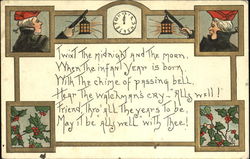 Twixt the midnight and the morn,
When the infant Year is born,
With the chime of passing bell,
Hear the watchman's cry - "All's well!"
Friend, thro' all the years to be,
May it be all's well with Thee!